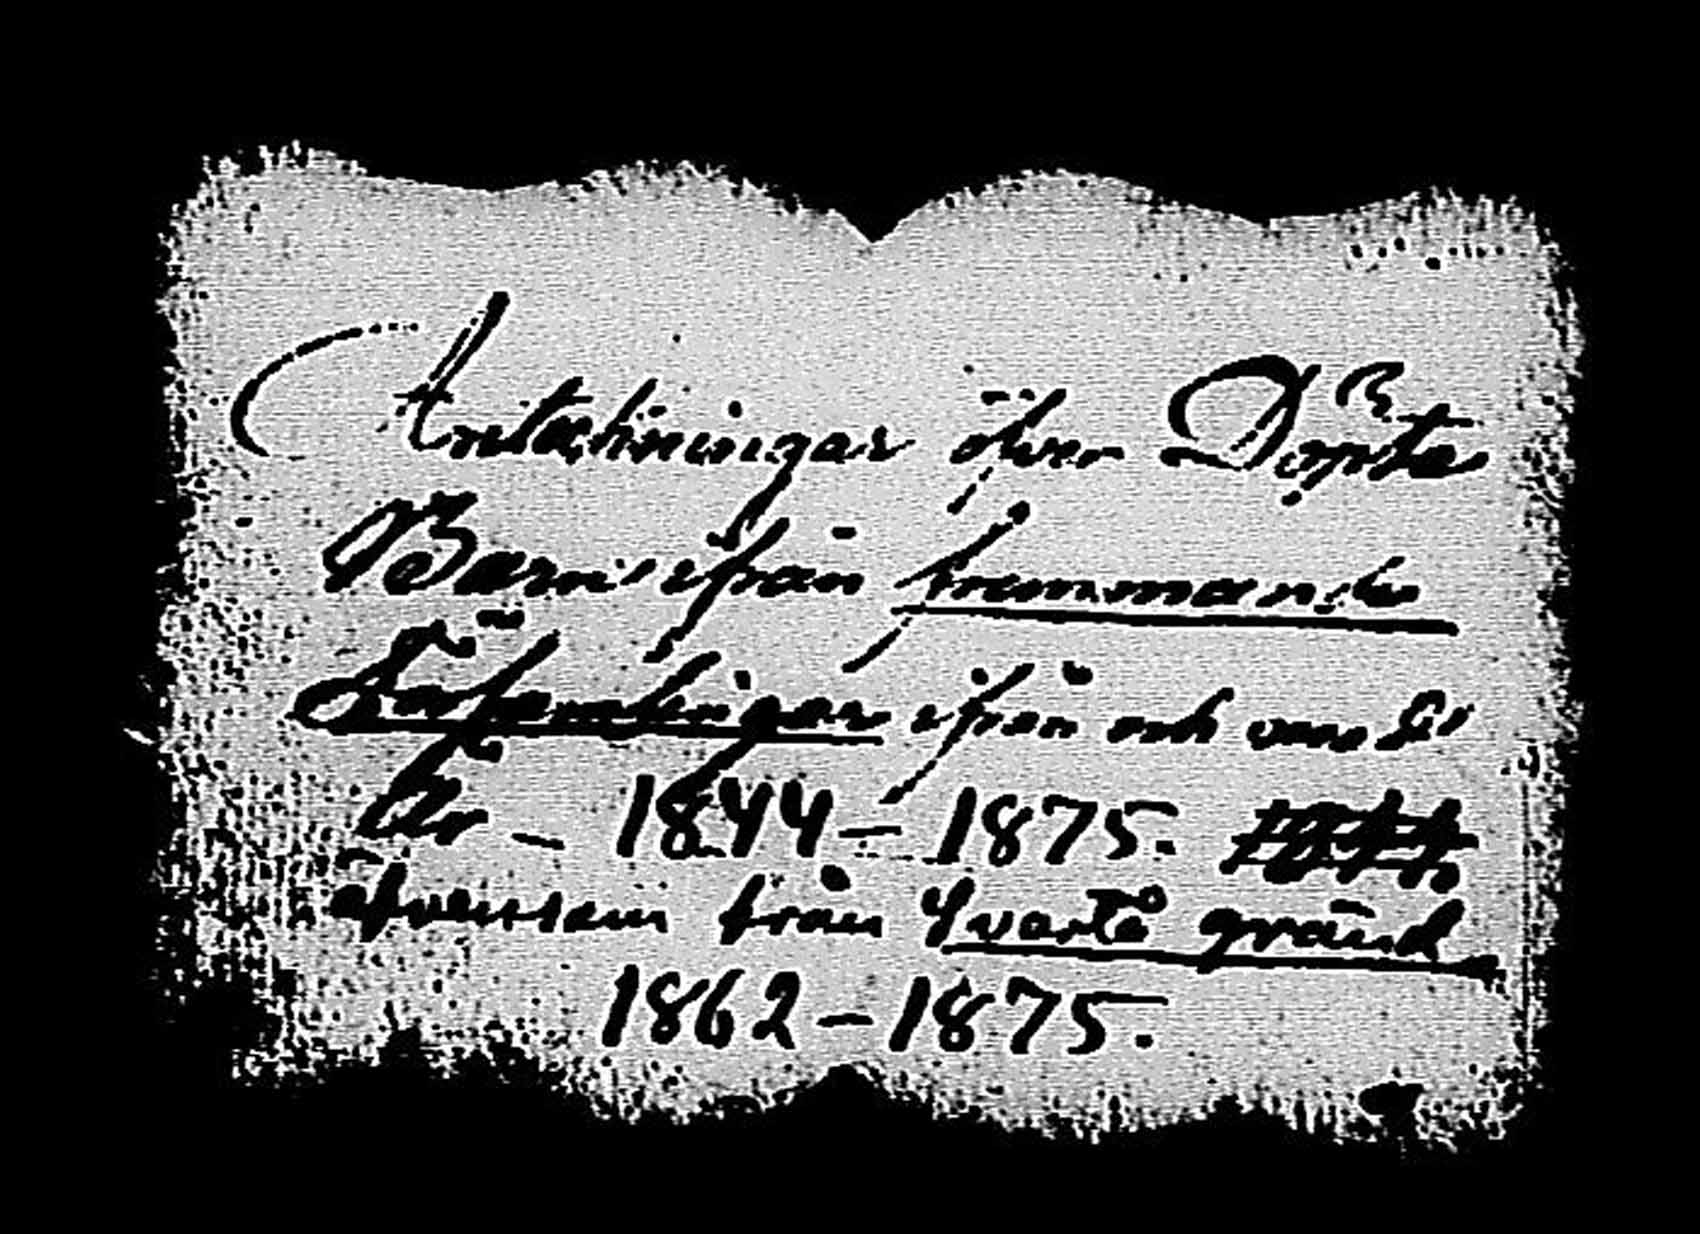 Antekningar öfver Döpte
Barn ifrån fremmande
Församlingar ifrån och med
År – 1844 – 1875.
äfvensom från Svartå gränd
1862 – 1875.